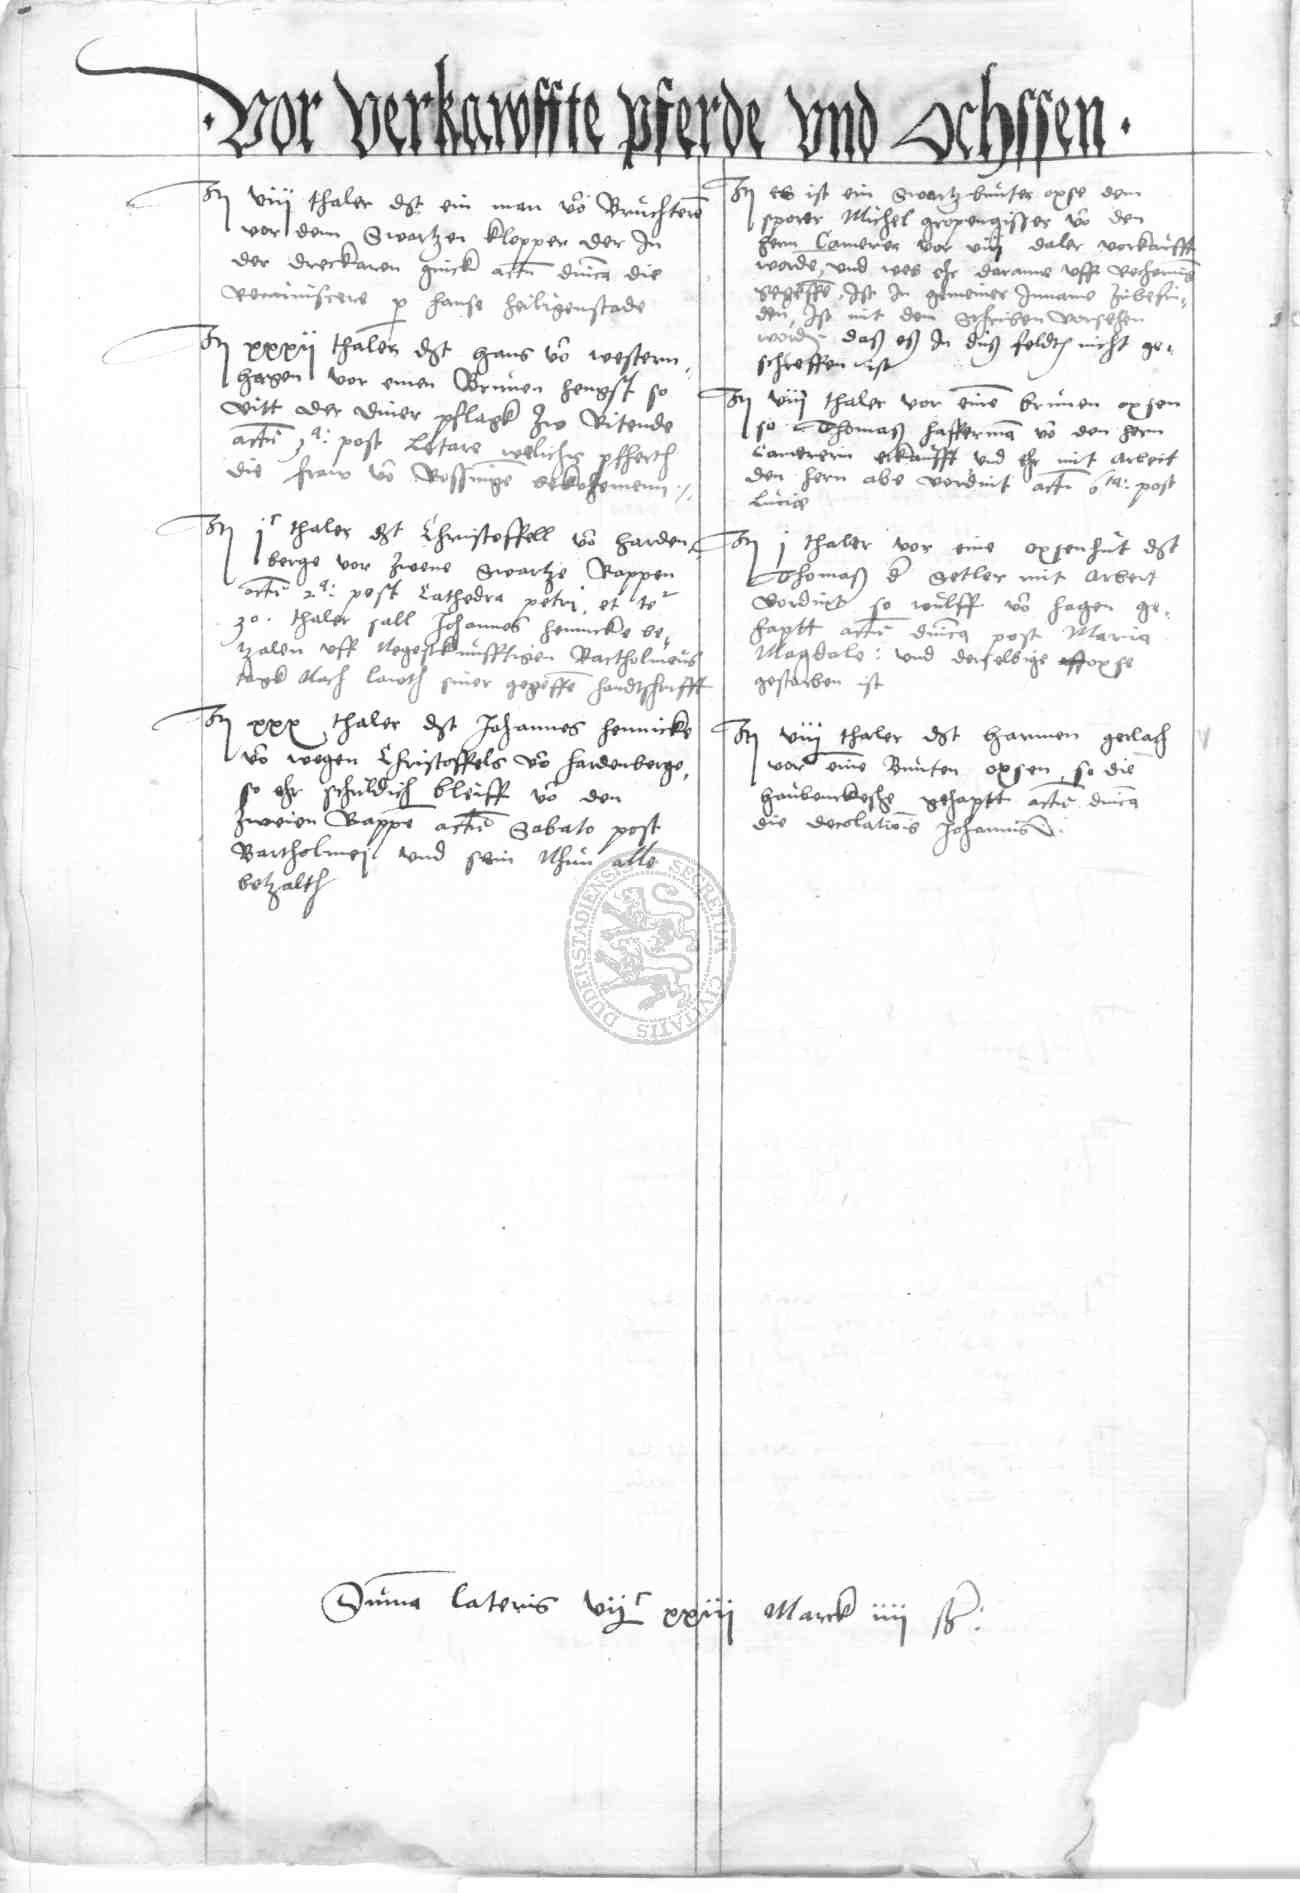 · Vor Verkawffte pferde vnd Ochssen ·
It viiij thaler dt ein man vo Bruchtere
vor dem Swartzen klepper der In
der dreckaren ginck actu dnica die
Reminiscere p hanse heiligenstade
It xxxij thaler dt hans vo western-
hagen vor einen Brunen hengst so
Vitt der diner pflagk zw Ritende
actu 3ª: post Letare welichs pfherth
die fraw vo Rossinge bekohemenn ./.
It jc thaler dt Christoffell vo harden-
berge vor zwene Swartze Rappen
actu 2ª: post Cathedra petri, et te
30. thaler sall Johannes Hennicke be-
tzalen vff Negestkunfftigen Bartholmeus
tagk Nach lawth siner gegeffe handtschrifft
It xxx thaler dt Johannes Hennicke
vo wegen Christoffels vo hardenberge,
so ehr schuldich bleiff vo den
zweien Rappe actu Sabato post
Bartholmej vnd sein Nhun alle
betzalth
It es ist ein Swartzbunter oxse dem
sporer Michel gropengisser vo den
hern Camerer vor viij daler vorkaufft
worde, vnd wes ehr daranne vff Rechennis
gegeffe, Ist In gemeiner Inname zubefin-
den, Ist mit dem Schriben vorsehen
worde, daß eß In diß feldt nicht ge-
schreffen ist
It viij thaler vor eine brunen oxsen
so Thomaß hafferma vo den hern
Camerern erkaufft vnd ehr mit Arbeit
den hern abe vordint actu 6ta: post
Lucia
It j thaler vor eine oxsenhut dt
Thomaß d Setler mit Arbeit
Vordint so wulff vo hagen ge-
haptt actu dnica post Maria
Magdale: vnd derselbige oxse
gestorben ist
It viij thaler dt Harmen gerlach
vor eine Bunten oxsen, so die
gehaptt actu dnica
die decolationis Johannis
Suma lateris vijc xxiij Marck iiij ß:
DUDERSTADIENSIS SECRETUM CIVITATIS